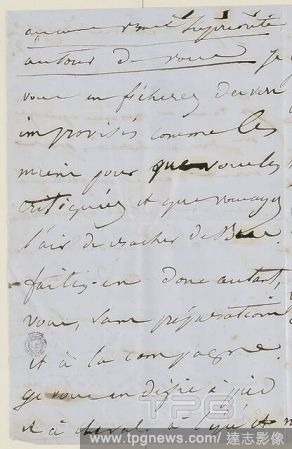 autour de vous je
vous en ficherez des vers
improvisés comme les
miens pour que vous les
critiquiez et que vous ayez
l'air de cracher de
faites-en donc autant,
vous, sans préparation
et à la campagne.
je vous en défie à pied
et à cheval. à l'épée et
TPG
www.tpgnews.com/達志影像